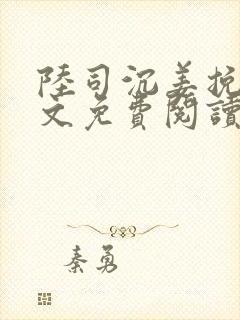 陸司沉姜挽
文免費閱讀
秦勇